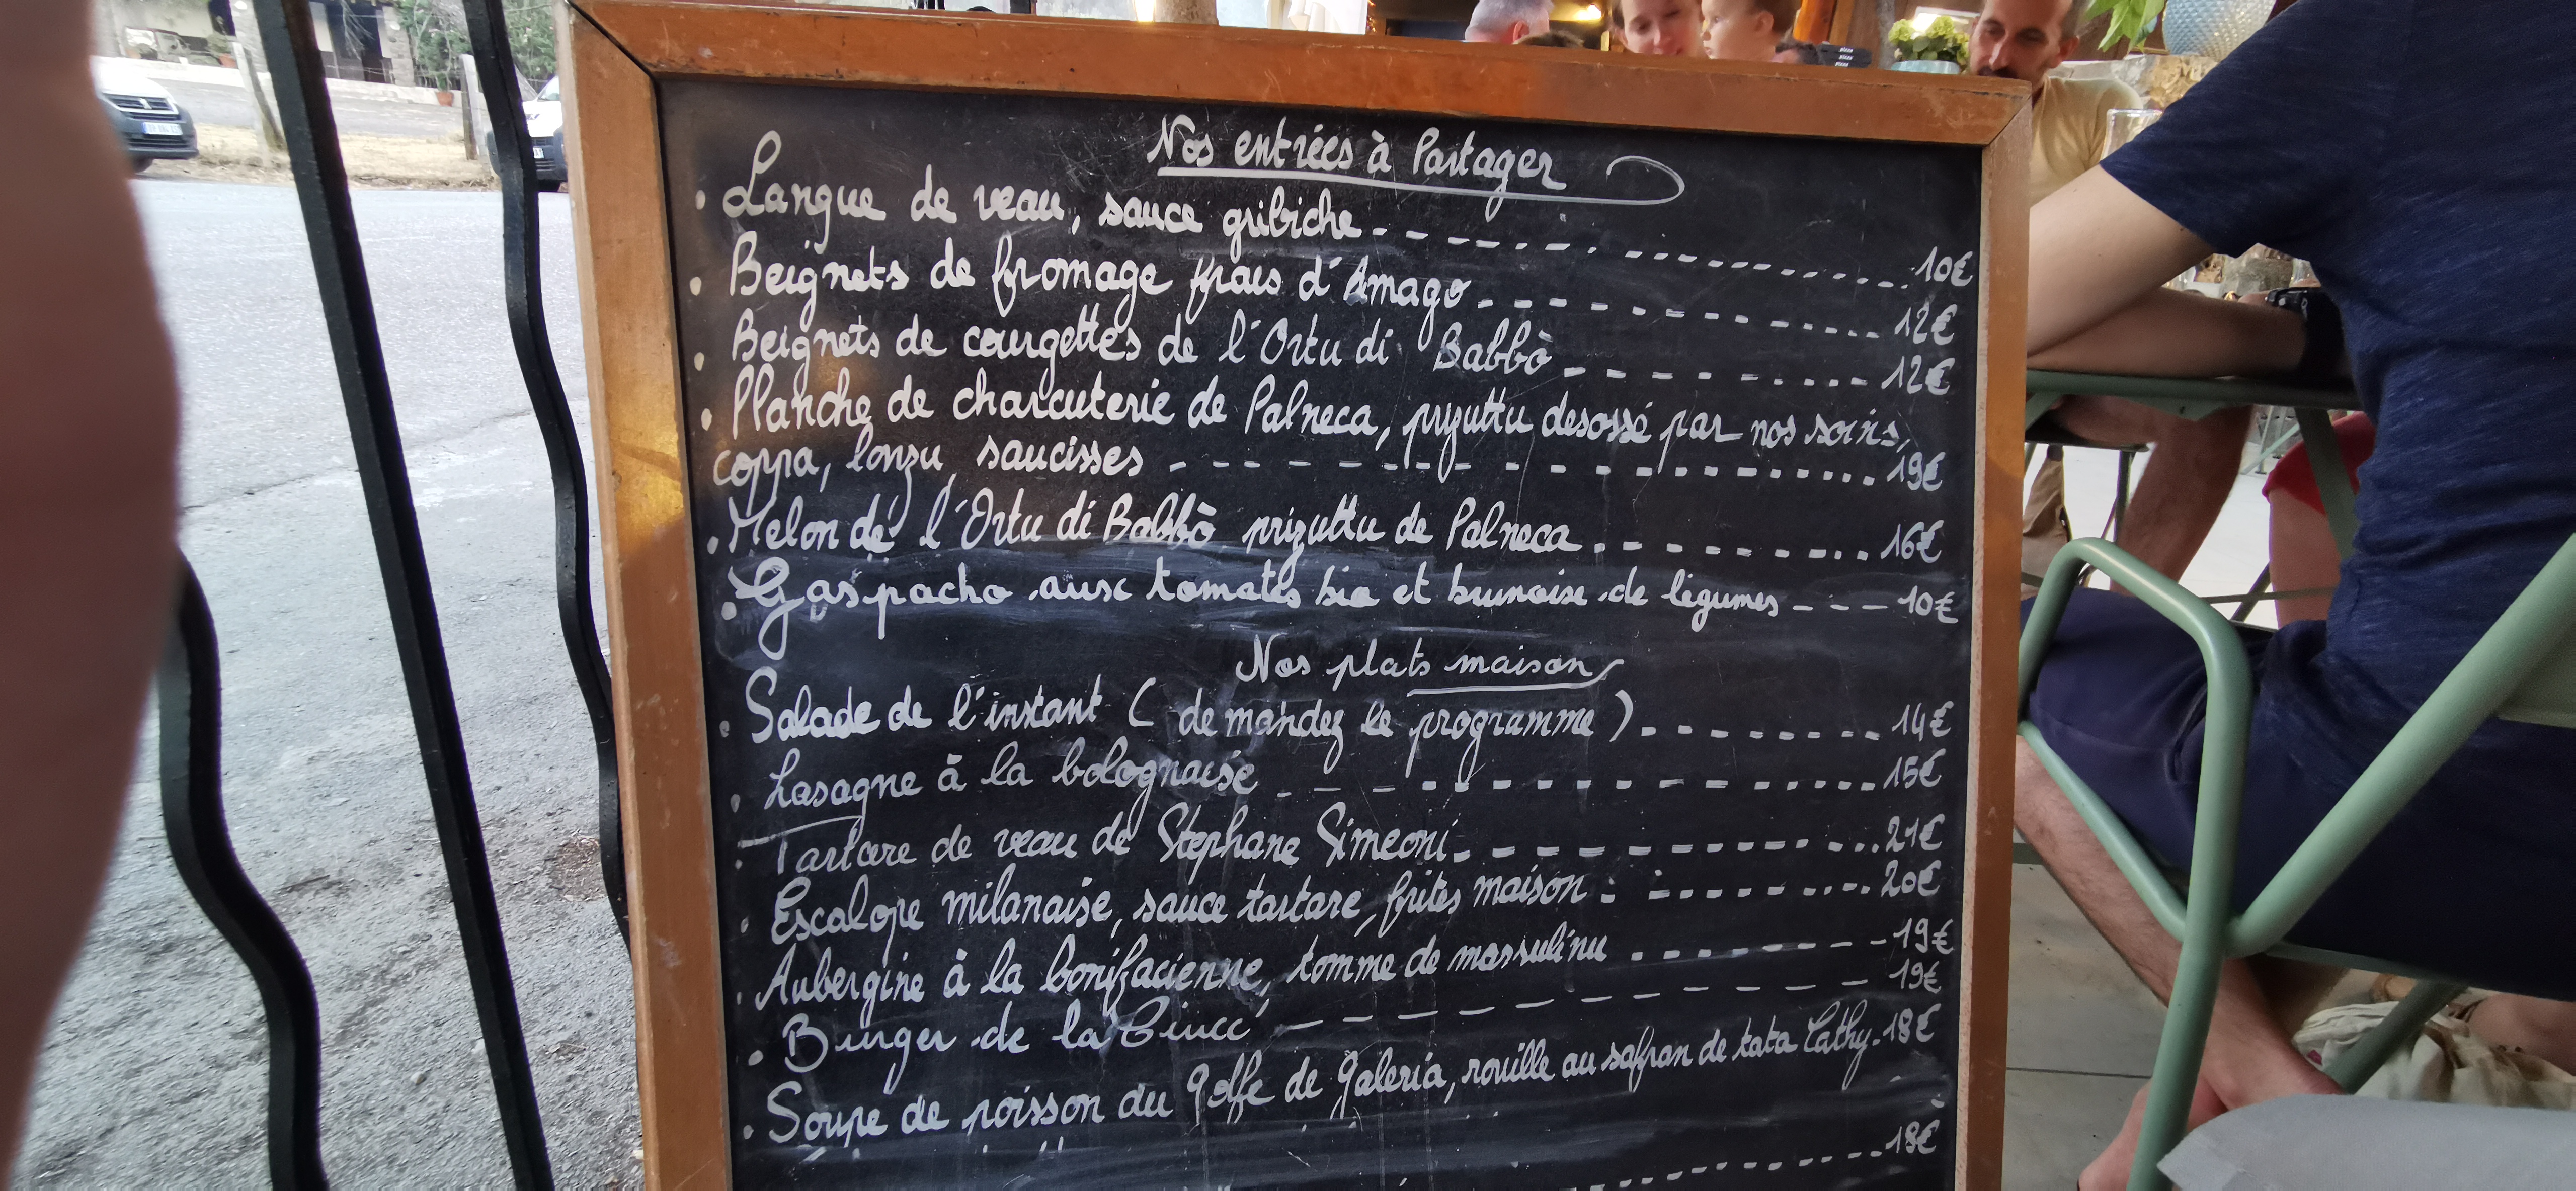 Nos entrées à Partager
. Langue de veau, sauce gribiche 10€
. Beignets de fromage frais d'Amago 12€
. Beignets de courgettes de l'Ortu di Babbò 12€
. Planche de charcuterie de Palneca, prizuttu desossé par nos soins,
coppa, lonzu, saucisses 19€
. Melon de l'Ortu di Babbò prizuttu de Palneca 16€
. Gaspacho aux tomates bio et brunoise de légumes 10€
Nos plats maison
. Salade de l'instant (demandez le programme) 14€
. Lasagne à la bolognaise 15€
. Tartare de veau de Stephane Simeoni 21€
. Escalope milanaise, sauce tartare, frites maison 20€
. Aubergine à la bonifacienne, tomme de massulinu 19€
. Burger de la 19€
. Soupe de poisson du golfe de Galeria, rouille au safran de tata Cathy 18€
18€